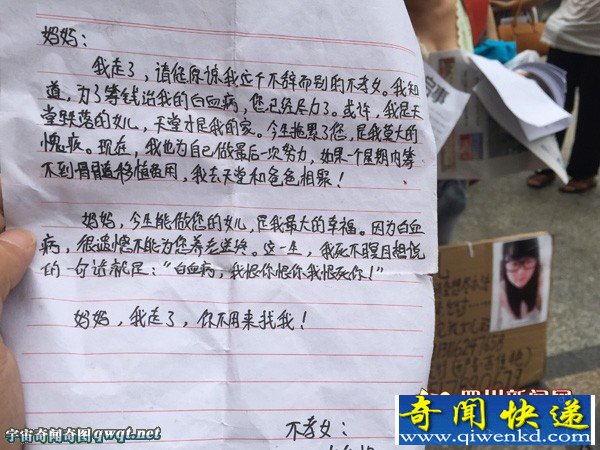 妈妈:
我走了,请您原谅我这个不辞而别的不孝女。我知
道,为了筹钱治我的白血病,您已经尽力了。或许,我是天
堂跌落的女儿,天堂才是我的家。今生拖累了您,是我莫大的
愧疚。现在,我也为自己做最后一次努力,如果一个星期内筹
不到骨髓移植费用,我去天堂和爸爸相聚!
妈妈,今生能做您的女儿,是我最大的幸福。因为白血
病,很遗憾不能为您养老送终。这一生,我死不瞑目想说
的一句话就是:“白血病,我恨你恨你我恨死你!”
妈妈,我走了,你不用来找我!
不孝女:
宇宙奇闻奇图qwqt.net
奇闻快递
www.qiwenkd.com